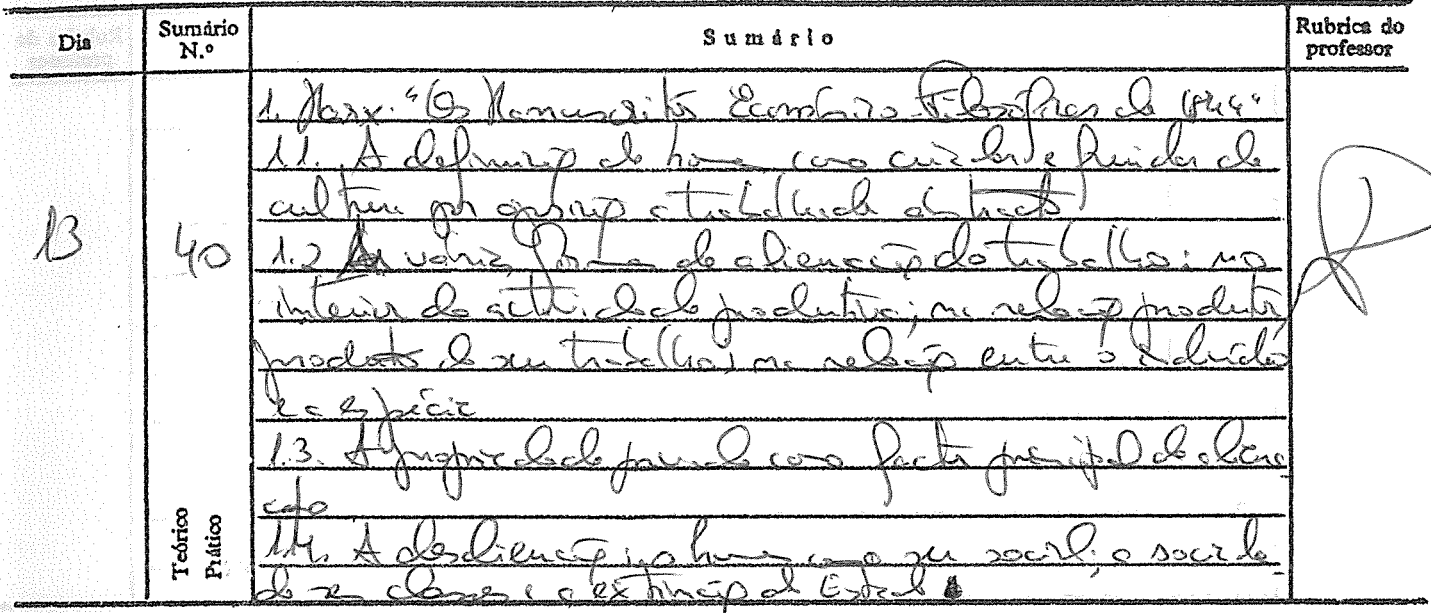 Dia
Sumário N.º
Sumário
Rubrica do professor
13
40
Teórico
Prático
1. Marx: "Os Manuscritos Económico-Filosóficos de 1844"
1.1. A definição do homem como criador e fruidor de
cultura por oposição a trabalhador abstracto
1.2 As várias formas de alienação do trabalho: no
interior da actividade produtiva; na relação produtor
produto do seu trabalho; na relação entre o indivíduo
e a espécie
1.3. A propriedade privada como factor principal de aliena
ção
1.4. A desalienação: o homem como ser social; a socieda
de sem classes e a extinção do Estado